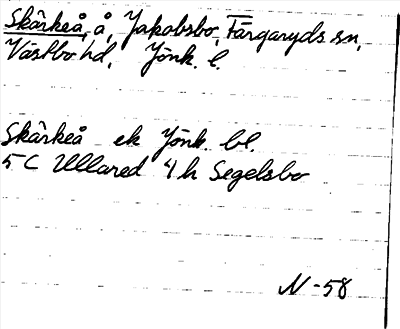 Skärkeå, å, Jakobsbo, Färgaryds sn,
Västbo hd, Jönk. l.
Skärkeå ek Jönk. bl.
5 C Ullared 4 h Segelsbo
N -58